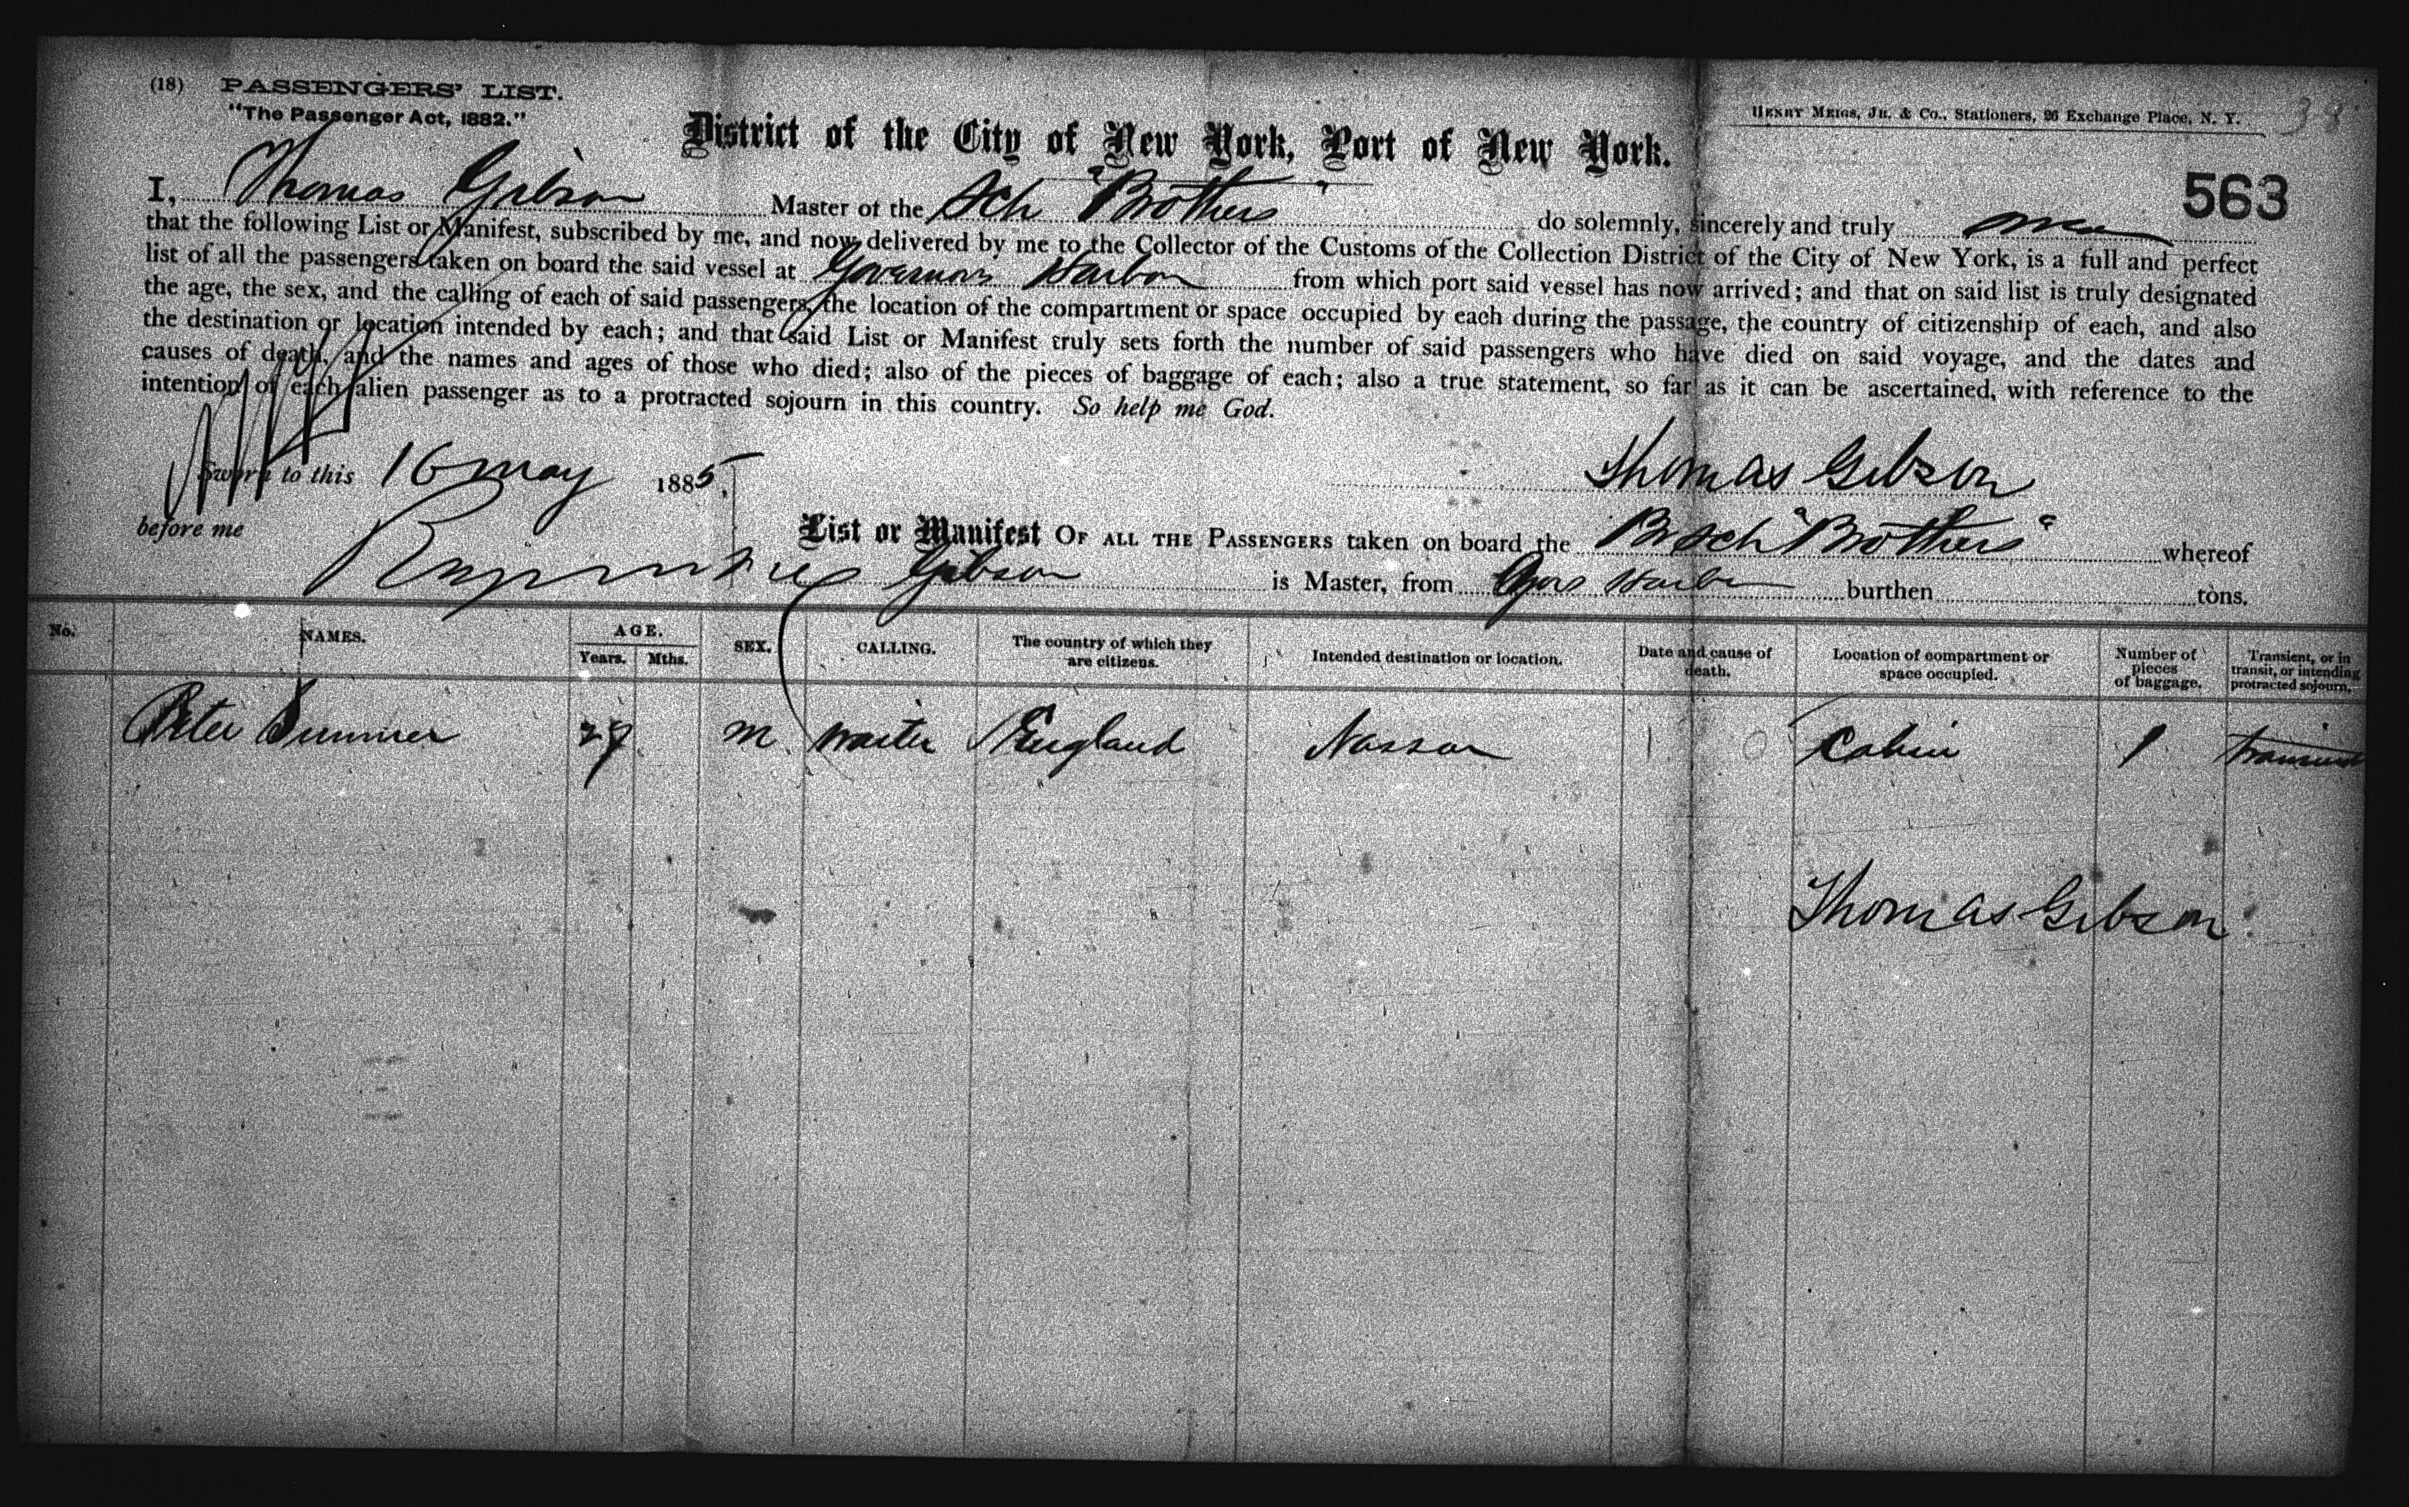 (18) PASSENGERS' LIST.
"The Passenger Act, 1882."
HENRY MEIGS, JR. & CO., Stationers, 26 Exchange Place, N. Y.
District of the City of New York, Port of New York.
563
I, Thomas Gibson Master of the Sch "Brothers" do solemnly, sincerely and truly
that the following List or Manifest, subscribed by me, and now delivered by me to the Collector of the Customs of the Collection District of the City of New York, is a full and perfect
list of all the passengers taken on board the said vessel at Governors Harbor from which port said vessel has now arrived; and that on said list is truly designated
the age, the sex, and the calling of each of said passengers, the location of the compartment or space occupied by each during the passage, the country of citizenship of each, and also
the destination or location intended by each; and that said List or Manifest truly sets forth the number of said passengers who have died on said voyage, and the dates and
causes of death, and the names and ages of those who died; also of the pieces of baggage of each; also a true statement, so far as it can be ascertained, with reference to the
intention of each alien passenger as to a protracted sojourn in this country. So help me God.
Sworn to this 16 May 1885,
Thomas Gibson
before me
List or Manifest OF ALL THE PASSENGERS taken on board the Br Sch "Brothers" whereof
Gibson is Master, from Harbor burthen tons.
No. NAMES. AGE. Years. Mths. SEX. CALLING. The country of which they are citizens. Intended destination or location. Date and cause of death. Location of compartment or space occupied. Number of pieces of baggage. Transient, or in transit, or intending protracted sojourn.
Peter M England Nassau Cabin 1 transient
Thomas Gibson